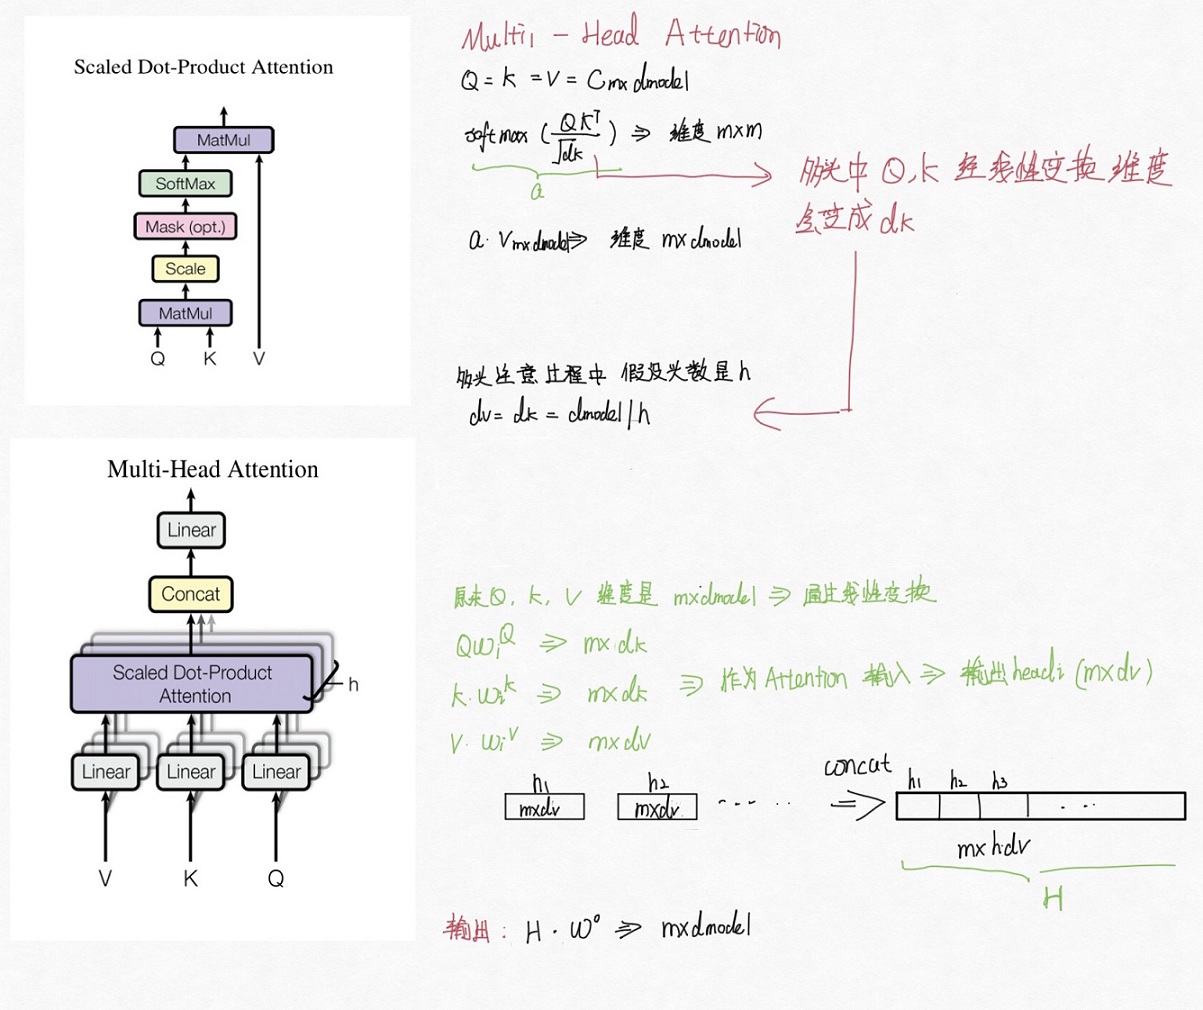 Scaled Dot-Product Attention
MatMul
SoftMax
Mask (opt.)
Scale
MatMul
Q K V
Multi-Head Attention
Linear
Concat
Scaled Dot-Product
Attention
h
Linear Linear Linear
V K Q
Multi - Head Attention
Q = K = V = Cm×dmodel
softmax (QKᵀ/√dk) ⇒ 维度 m×m
a
多头中 Q,K 经线性变换维度
会变成 dk
a· Vm×dmodel ⇒ 维度 m×dmodel
多头注意过程中 假设头数是h
dv = dk = dmodel/h
原来Q, K, V 维度是 m×dmodel ⇒ 通过线性变换
QWiQ ⇒ m×dk
K·WiK ⇒ m×dk ⇒ 作为Attention 输入 ⇒ 输出headi (m×dv)
V·WiV ⇒ m×dv
h1 h2 concat h1 h2 h3
m×dv m×dv ---- ·· ⇒ ···
m×h·dv
H
输出: H · Wº ⇒ m×dmodel